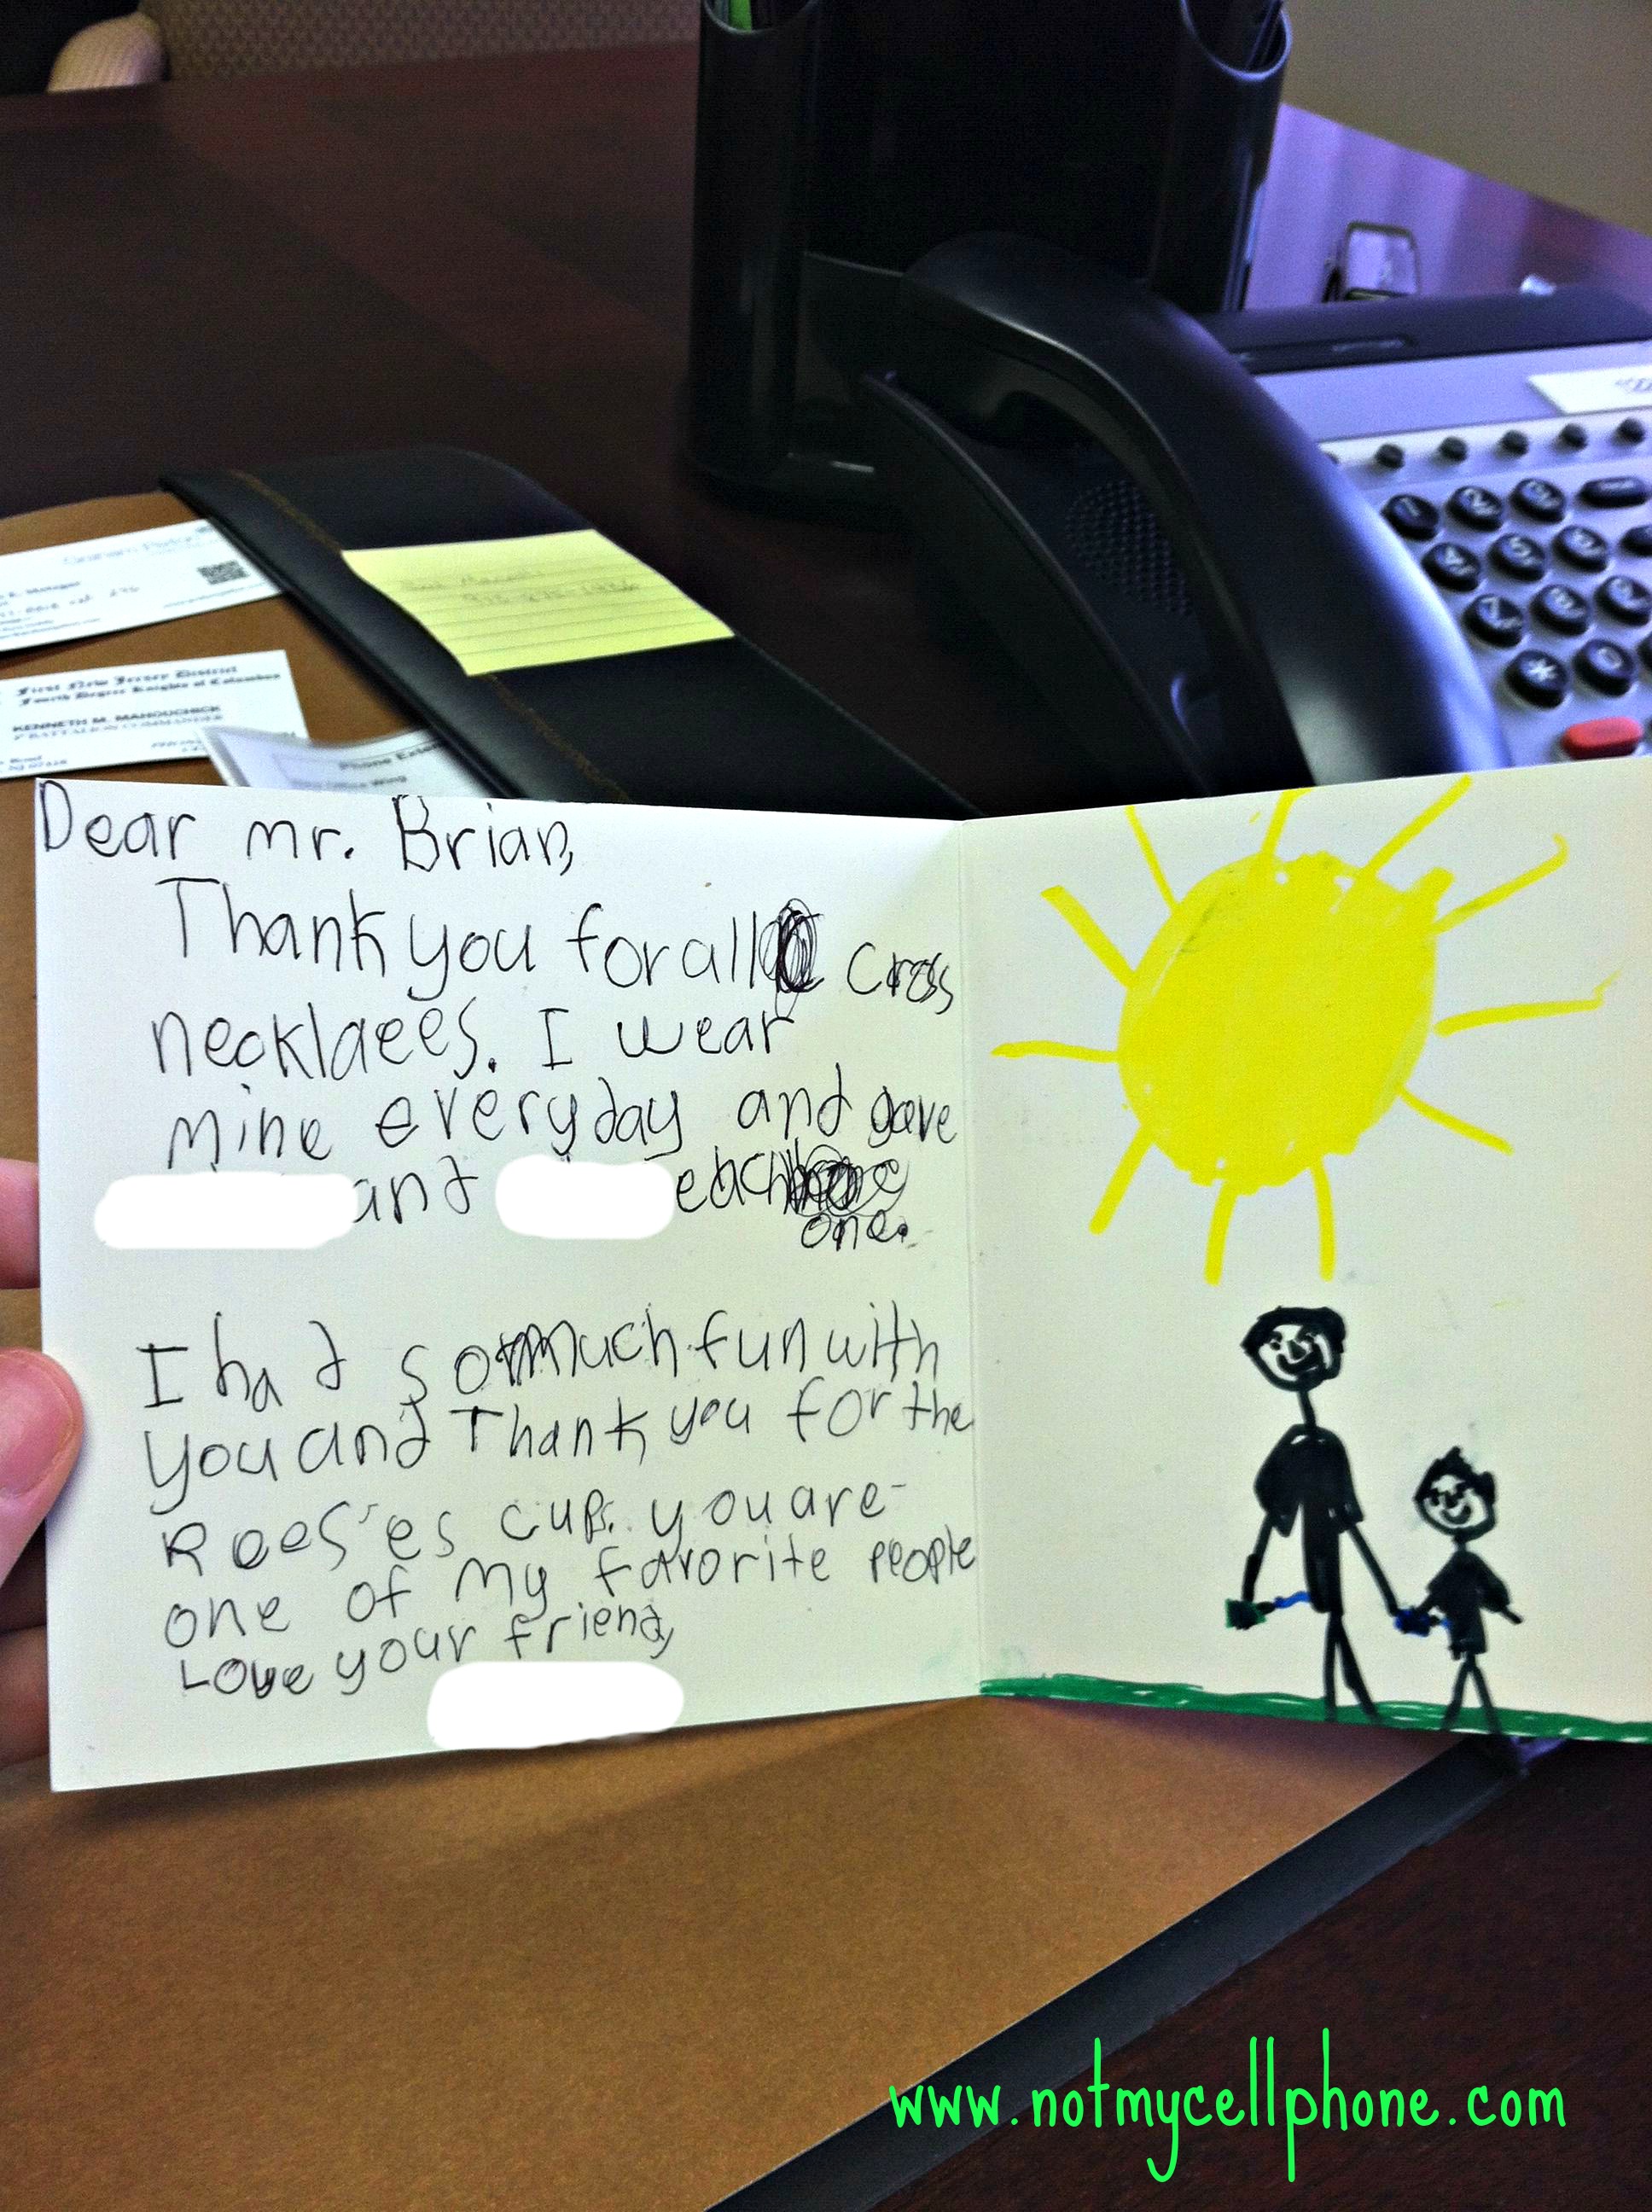 First New Jersey District
Fourth Degree Knights of Columbus
KENNETH M.
Phone
Office Wing
1 2 3
4 5 6
7 8 9
* 0
Dear mr. Brian,
Thank you for all cross
necklaees. I wear
mine everyday and gave
and each
one.
I had so much fun with
you and Thank you for the
Rees'es cups. you are-
one of my favorite people
Love your friend,
www.notmycellphone.com